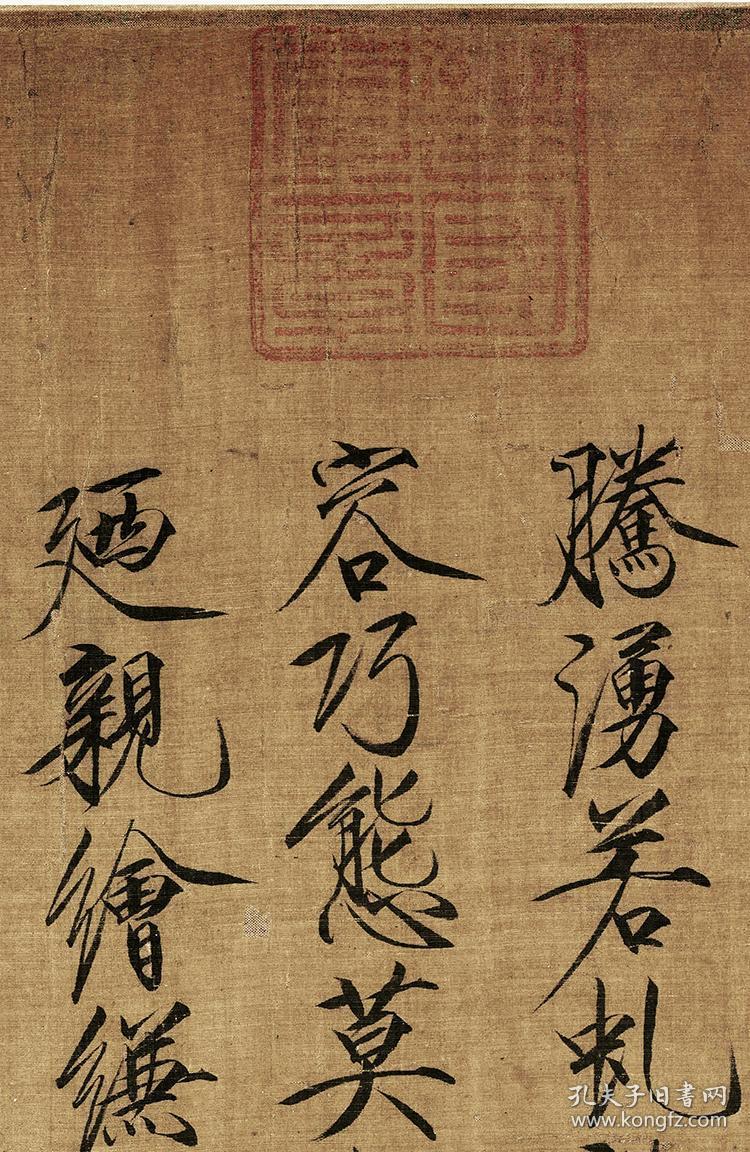 騰湧若虬
容巧態莫
廼親繪縑
孔夫子旧书网
www.kongfz.com